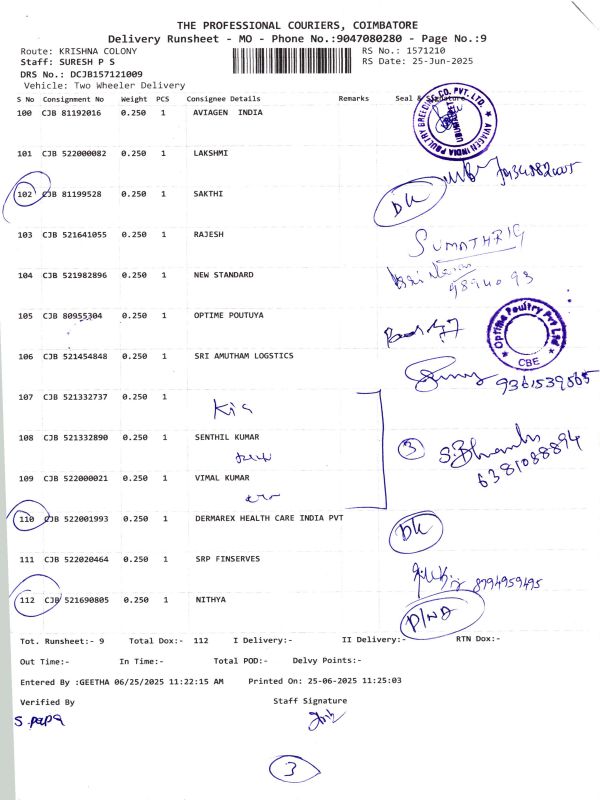 THE PROFESSIONAL COURIERS, COIMBATORE
Delivery Runsheet - MO - Phone No.:9047080280 - Page No.:9
Route: KRISHNA COLONY RS No.: 1571210
Staff: SURESH P S RS Date: 25-Jun-2025
DRS No.: DCJB157121009
Vehicle: Two Wheeler Delivery
S No Consignment No Weight PCS Consignee Details Remarks Seal & Signature
100 CJB 81192016 0.250 1 AVIAGEN INDIA
AVIAGEN INDIA POULTRY BREEDING CO. PVT. LTD.
101 CJB 522000082 0.250 1 LAKSHMI
102 CJB 81199528 0.250 1 SAKTHI DL
103 CJB 521641055 0.250 1 RAJESH SUMATHRIG
104 CJB 521982896 0.250 1 NEW STANDARD
105 CJB 80955304 0.250 1 OPTIME POUTUYA
Optima Poultry Pvt Ltd CBE
106 CJB 521454848 0.250 1 SRI AMUTHAM LOGSTICS 9361539565
107 CJB 521332737 0.250 1
108 CJB 521332890 0.250 1 SENTHIL KUMAR 3
6381088894
109 CJB 522000021 0.250 1 VIMAL KUMAR
110 CJB 522001993 0.250 1 DERMAREX HEALTH CARE INDIA PVT DL
111 CJB 522020464 0.250 1 SRP FINSERVES
8794959495
112 CJB 521690805 0.250 1 NITHYA D/NA
Tot. Runsheet:- 9 Total Dox:- 112 I Delivery:- II Delivery:- RTN Dox:-
Out Time:- In Time:- Total POD:- Delvy Points:-
Entered By :GEETHA 06/25/2025 11:22:15 AM Printed On: 25-06-2025 11:25:03
Verified By Staff Signature
S. papa
3